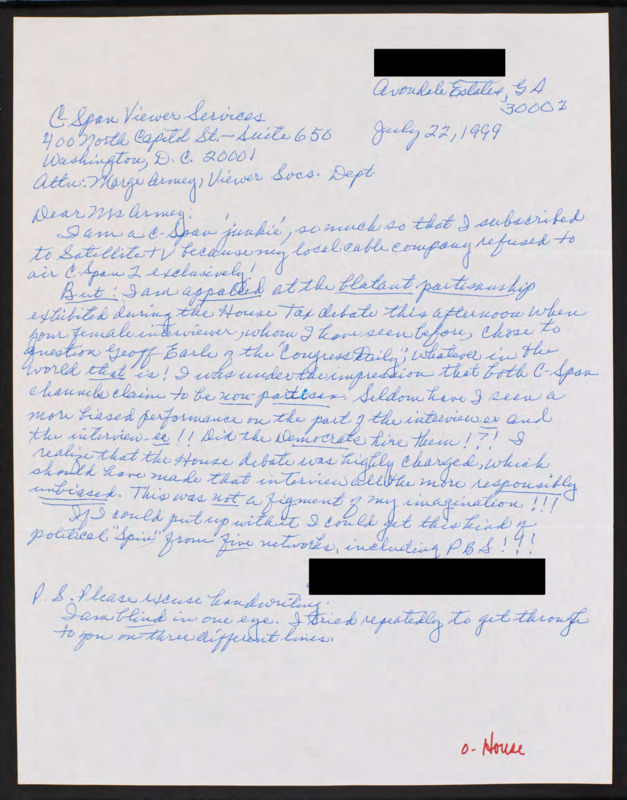 Avondale Estates, GA
30002
July 22, 1999
C-Span Viewer Services
400 North Capitol St. - Suite 650
Washington, D.C. 20001
Attn: Marge Armey, Viewer Svcs. Dept
Dear Ms Armey:
I am a C-Span 'junkie', so much so that I subscribed
to Satellite TV because my local cable company refused to
air C-Span 2 exclusively!
But: I am appalled at the blatant partisanship
exhibited during the House Tax debate this afternoon when
your female interviewer, whom I have seen before, chose to
question Geoff Earle of the 'Congress Daily,' whatever in the
world that is! I was under the impression that both C-Span
channels claim to be non-partisan. Seldom have I seen a
more biased performance on the part of the interview er and
the interview-ee!! Did the Democrats hire them!?! I
realize that the House debate was highly charged, which
should have made that interview all the more responsibly
unbiased. This was not a figment of my imagination!!!
If I could put up with it I could get this kind of
political "Spin" from five networks, including PBS!!!
P.S. Please excuse handwriting.
I am blind in one eye. I tried repeatedly to get through
to you on three different lines.
o- House